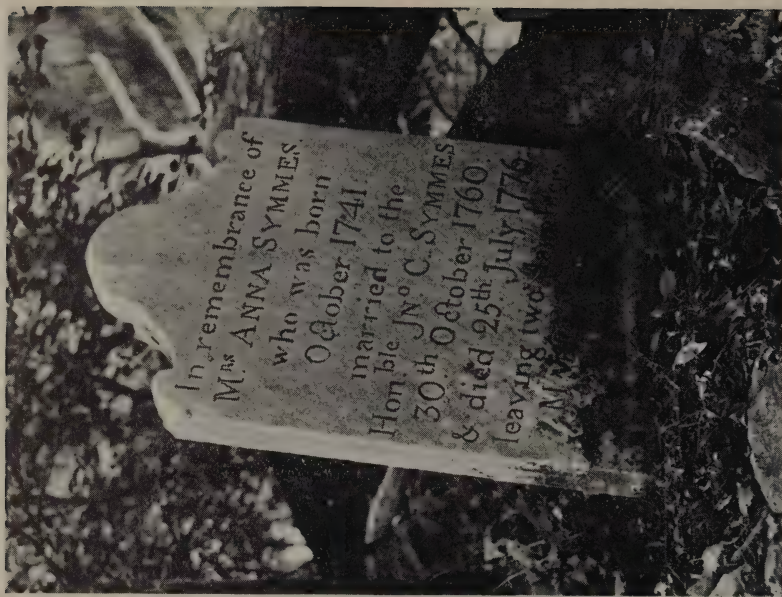 In remembrance of
Mrs ANNA SYMMES.
who was born
October 1741
married to the
Honble JNo C. SYMMES
30th October 1760.
& died 25th July 1776
leaving two